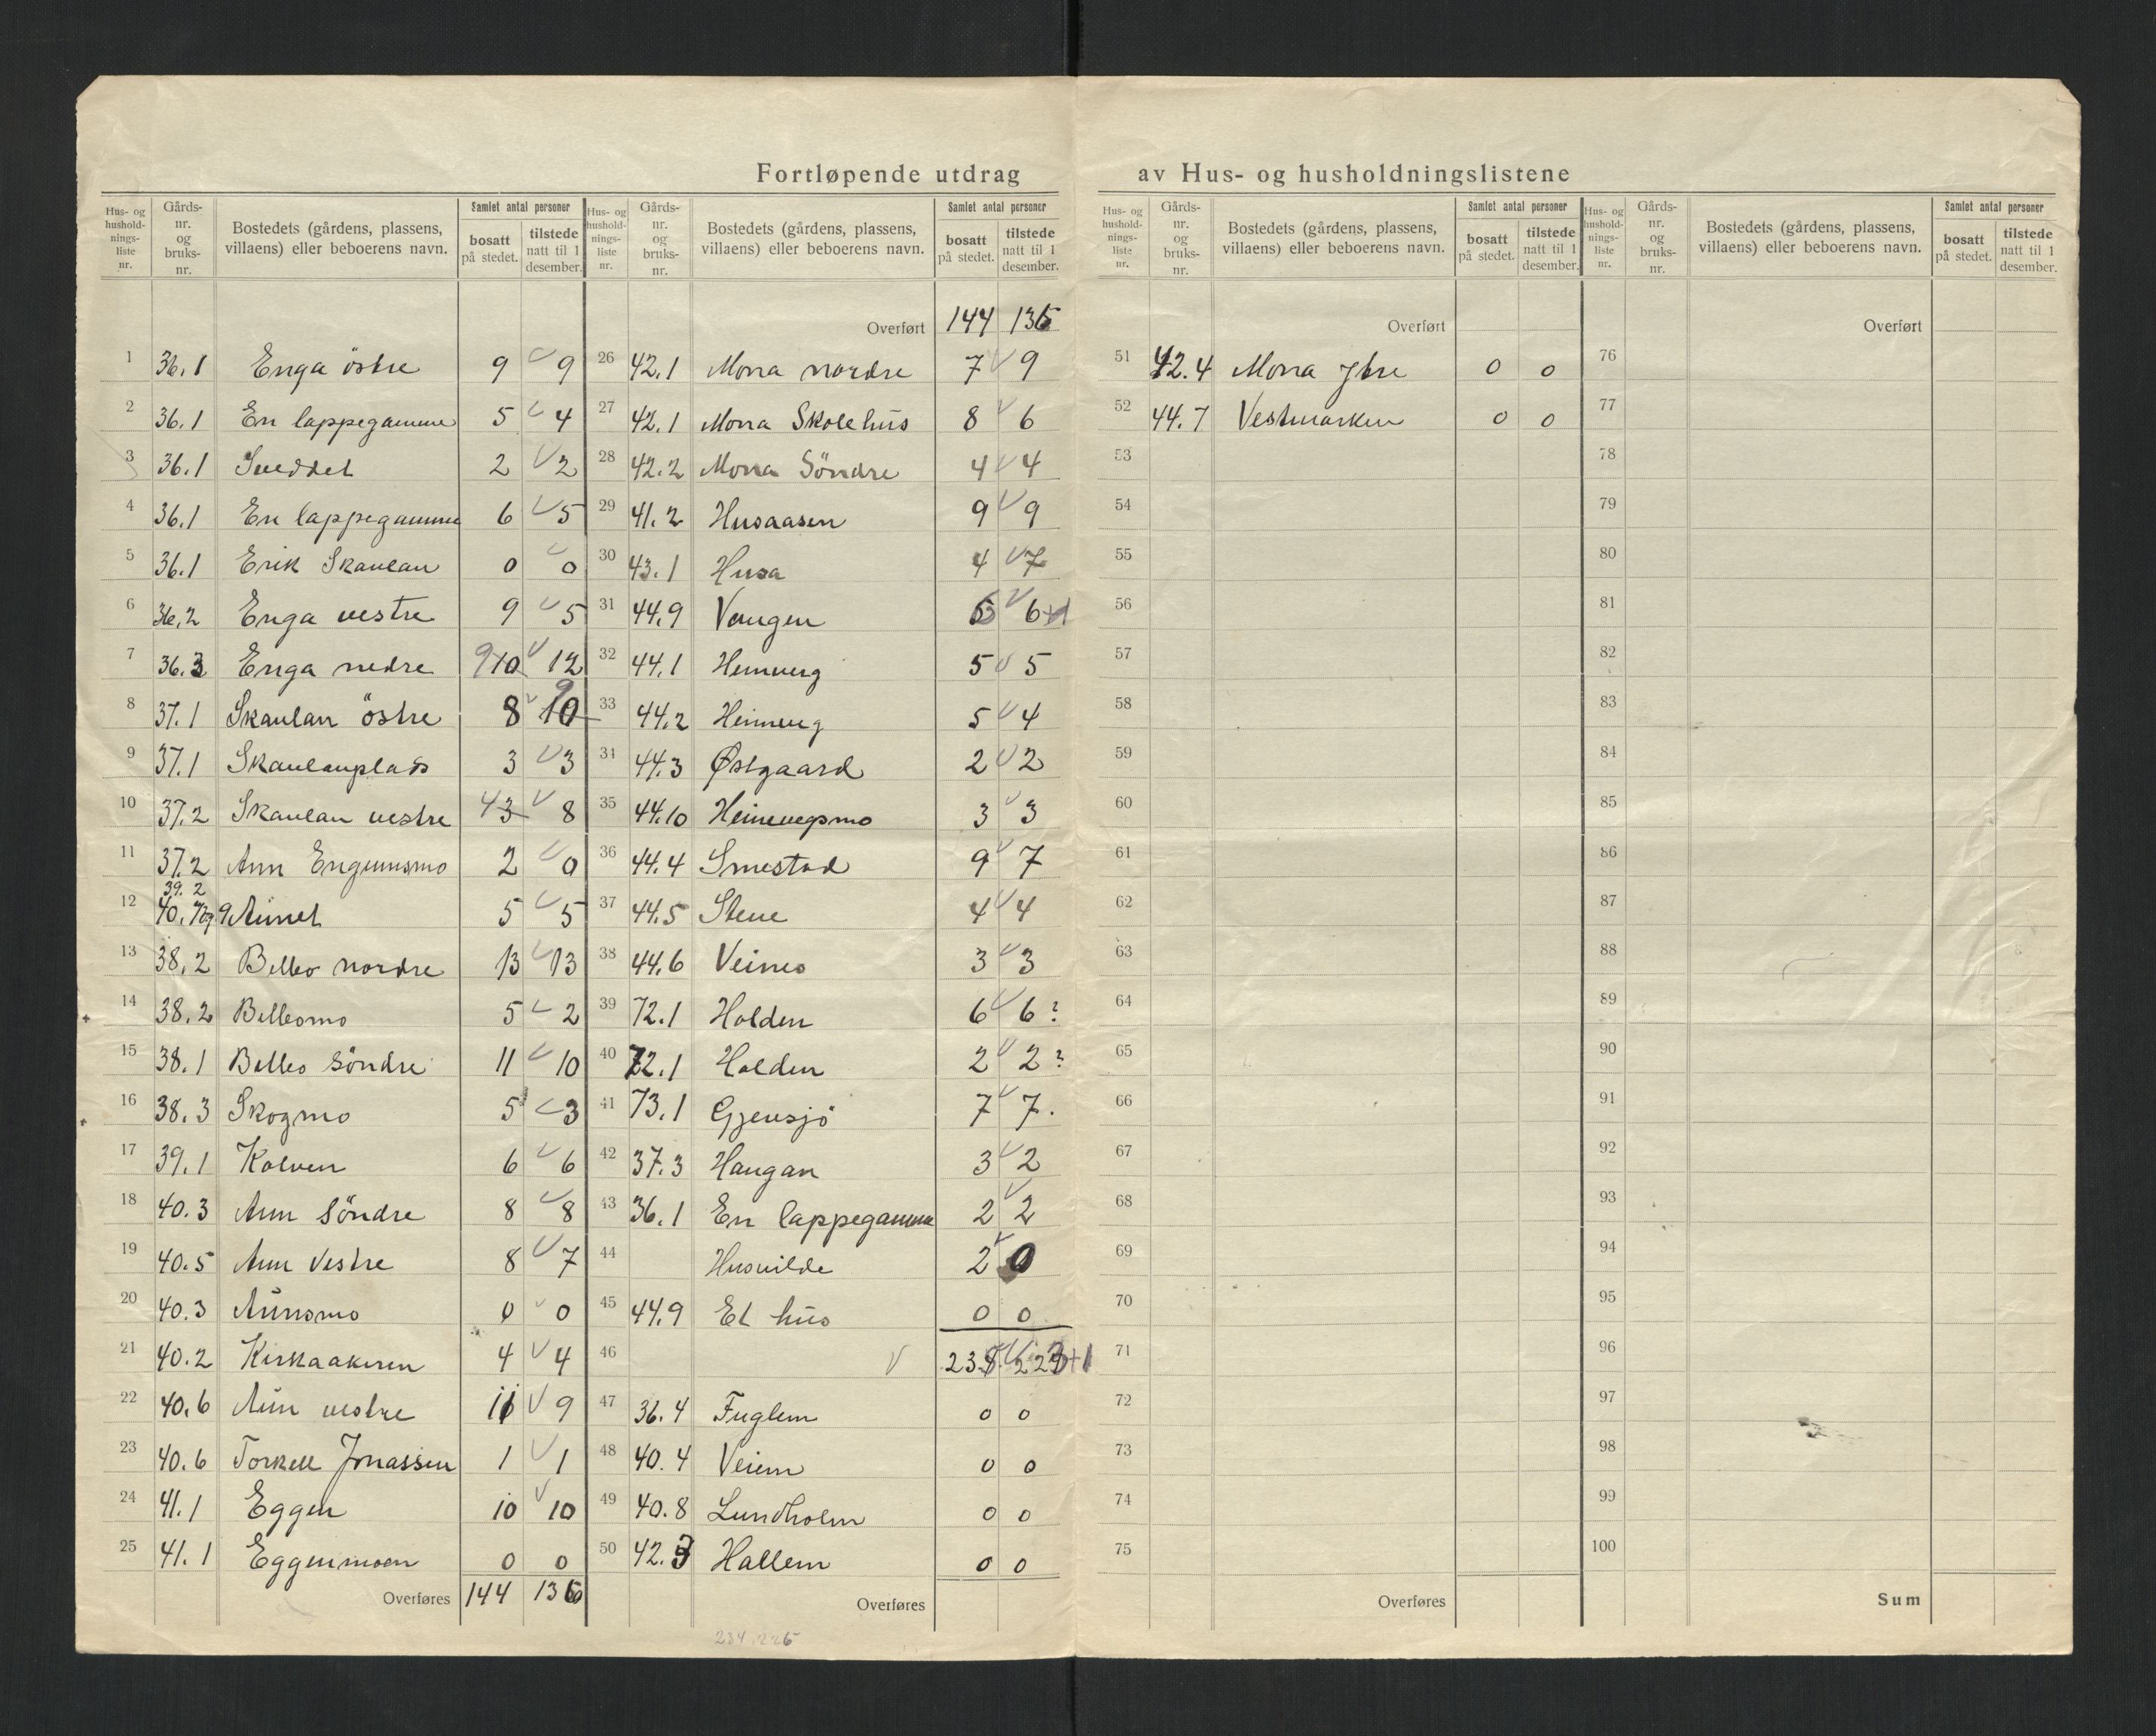 Fortløpende utdrag av Hus- og husholdningslistene
Hus- og husholdnings-liste nr. Gårds-nr. og bruks-nr. Bostedets (gårdens, plassens, villaens) eller beboerens navn. Samlet antal personer bosatt på stedet. tilstede natt til 1 desember.
1 36.1 Enga östre 9 9
2 36.1 En lappegamme 5 4
3 36.1 Sveddet 2 2
4 36.1 En lappegamme 6 5
5 36.1 Erik Skaulan 0 0
6 36.2 Enga vestre 9 5
7 36.3 Enga nedre 9 10 12
8 37.1 Skaulan östre 8 10 9
9 37.1 Skaulanplads 3 3
10 37.2 Skaulan vestre 4 3 8
11 37.2 Aun Engumsmo 2 0
12 39.2 40. 7og9 Aunet 5 5
13 38.2 Belbo nordre 13 13
14 38.2 Belbomo 5 2
15 38.1 Belbo Söndre 11 10
16 38.3 Skogmo 5 3
17 39.1 Kolven 6 6
18 40.3 Aun Söndre 8 8
19 40.5 Aun Vestre 8 7
20 40.3 Aunsmo 0 0
21 40.2 Kirkaakeren 4 4
22 40.6 Aun vestre 11 9
23 40.6 Torkell Jonassen 1 1
24 41.1 Eggen 10 10
25 41.1 Eggenmoen 0 0
Overføres 144 136
Hus- og husholdnings-liste nr. Gårds-nr. og bruks-nr. Bostedets (gårdens, plassens, villaens) eller beboerens navn. Samlet antal personer bosatt på stedet. tilstede natt til 1 desember.
Overført 144 136
26 42.1 Mona nordre 7 9
27 42.1 Mona Skolehus 8 6
28 42.2 Mona Söndre 4 4
29 41.2 Husaasen 9 9
30 43.1 Husa 4 7
31 44.9 Vangen 6 6+1
32 44.1 Heinveg 5 5
33 44.2 Heinveg 5 4
34 44.3 Østgaard 2 2
35 44.10 Heinvegsmo 3 3
36 44.4 Smestad 9 7
37 44.5 Stene 4 4
38 44.6 Veimo 3 3
39 72.1 Holden 6 6?
40 72.1 Holden 2 2?
41 73.1 Gjensjö 7 7.
42 37.3 Haugan 3 2
43 36.1 En lappegamme 2 2
44 Husvilde 2 0
45 44.9 Et hus 0 0
46 235 223+1
47 36.4 Fuglem 0 0
48 40.4 Veiem 0 0
49 40.8 Lundholm 0 0
50 42.3 Hallem 0 0
Overføres
234 225
Hus- og husholdnings-liste nr. Gårds-nr. og bruks-nr. Bostedets (gårdens, plassens, villaens) eller beboerens navn. Samlet antal personer bosatt på stedet. tilstede natt til 1 desember.
Overført
51 42.4 Mona Ytre 0 0
52 44.7 Vestmarken 0 0
53
54
55
56
57
58
59
60
61
62
63
64
65
66
67
68
69
70
71
72
73
74
75
Overføres
Hus- og husholdnings-liste nr. Gårds-nr. og bruks-nr. Bostedets (gårdens, plassens, villaens) eller beboerens navn. Samlet antal personer bosatt på stedet. tilstede natt til 1 desember.
Overført
76
77
78
79
80
81
82
83
84
85
86
87
88
89
90
91
92
93
94
95
96
97
98
99
100
Sum